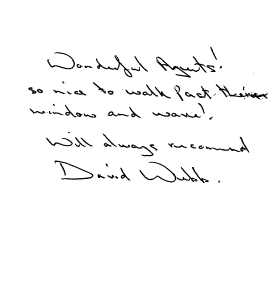 Wonderful Agents!
so nice to walk past their
window and wave!.
Will always recommend
David Webb.